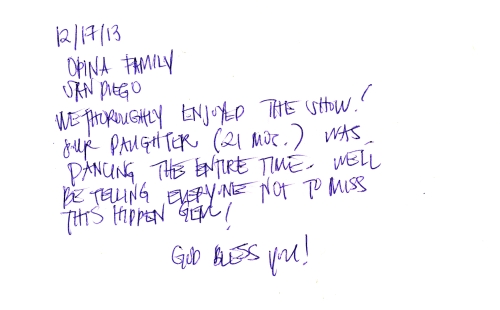 12/17/13
OPINA FAMILY
SAN DIEGO
WE THOROUGHLY ENJOYED THE SHOW!
OUR DAUGHTER (21 MOS.) WAS
DANCING THE ENTIRE TIME. WE'LL
BE TELLING EVERYONE NOT TO MISS
THIS HIDDEN GEM!
GOD BLESS YOU!